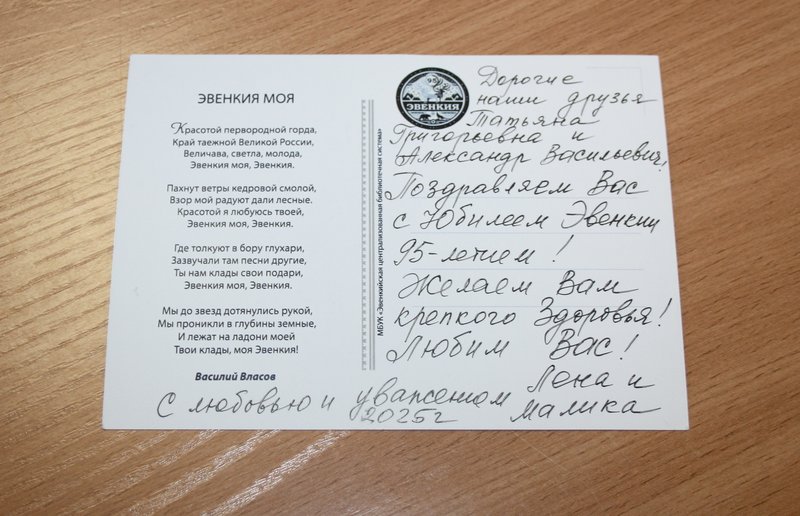 ЭВЕНКИЯ МОЯ
Красотой первородной горда,
Край таежной Великой России,
Величава, светла, молода,
Эвенкия моя, Эвенкия.
Пахнут ветры кедровой смолой,
Взор мой радуют дали лесные.
Красотой я любуюсь твоей,
Эвенкия моя, Эвенкия.
Где толкуют в бору глухари,
Зазвучали там песни другие,
Ты нам клады свои подари,
Эвенкия моя, Эвенкия.
Мы до звезд дотянулись рукой,
Мы проникли в глубины земные,
И лежат на ладони моей
Твои клады, моя Эвенкия!
Василий Власов
МБУК «Эвенкийская централизованная библиотечная система»
95
ЭВЕНКИЯ
Дорогие
наши друзья
Татьяна
Григорьевна и
Александр Васильевич,
Поздравляем Вас
с Юбилеем Эвенкии
95-летием !
Желаем Вам
крепкого Здоровья!
Любим Вас!
Лена и
Малика
С любовью и уважением
2025г